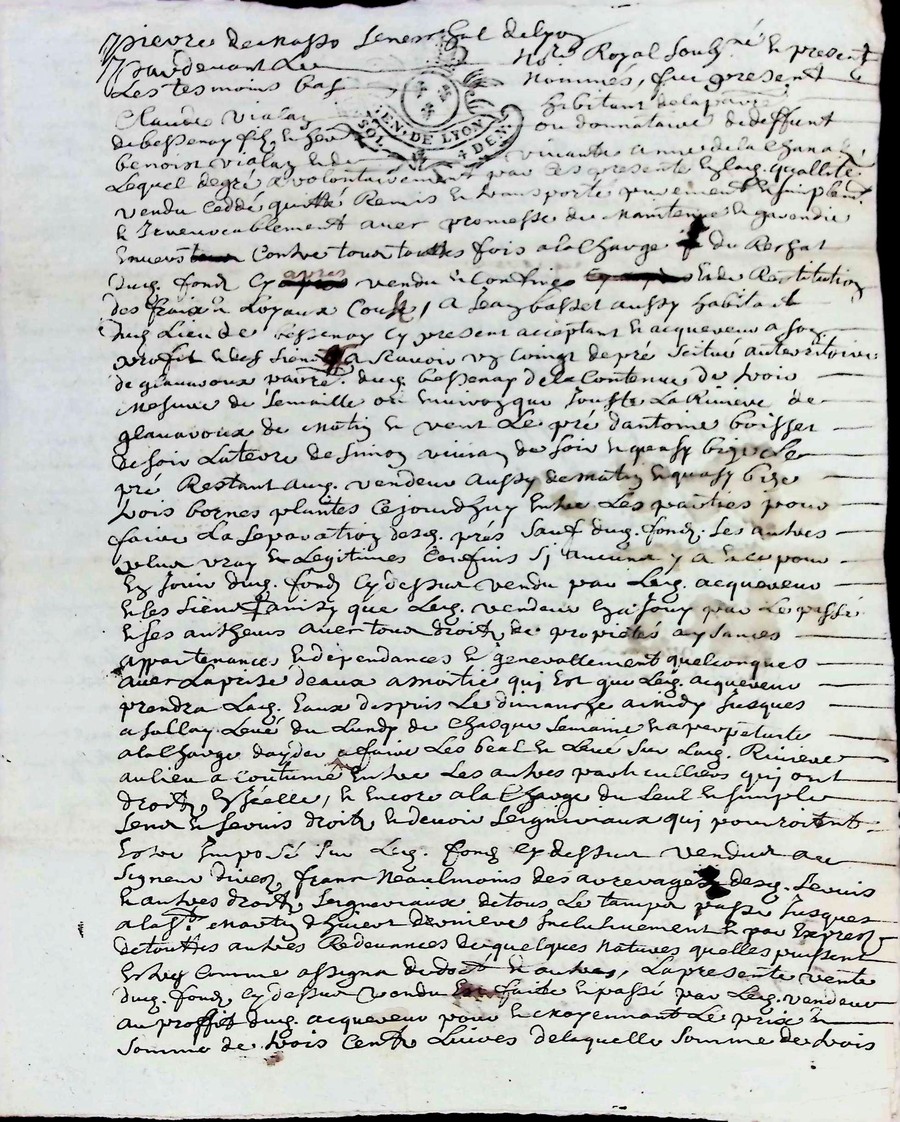 pierre de masso senechal de lyon
Pardevant Le No.re Royal Soub.né et present
Les tesmoins bas nommes, fut present
Claude vialay habitant de la parr.
de bessenay filz et ou donnataire de deffunt
benoist vialay et de vivante anne de la
Lequel de gré a volontairement par ces presente et lad. quallité
vendu cedde quitté Remis et transporte purement et simplem.
et Irrevocablement avec promesse de maintenir et garendir
Envers Contre tous toutes fois a la Charge du Rachat
dud. fond Cy apres vendu et Confine et de Restitution
des fraix et Loyaux Couts, A Jean basset aussy habitant
dud. Lieu de bessenay Cy present acceptant et acquereur a son
proffit et des siens A scavoir un Coing de pré scitué au territoire
de glavavoux parre. dud. bessenay de la Contenue de trois
mesure de semaille ou environ que jouste La Riviere de
glavavoux de matin et vent Le pré d'antoine boisset
de soir La terre de simon de soir et quasy bize Le
pré Restant aud. vendeur aussy de matin et quasy bize
trois bornes plantes Cejourdhuy Entre Les parties pour
faire La separation desd. prés sauf dud. fond. Ses autres
plus vray et Legitimes Confins sy aucuns y a et ce pour
En Jouir dud. fond Cy dessus vendu par Led. acquereur
et les siens Tainsy que Led. vendeur En a Jouy par Le passé
et ses autheurs avec tous droits de proprietés aysances
appartenances et dépendances et generallement quelconques
avec La prise deaux amortie qui Est que Led. acquereur
prendra Lad. Eaux despuis Le dimanche a midy Jusques
a solley Levé du Lundy de Chasque semaine et a perpetuite
a la Charge dayder a faire Les beal et Levé sur Lad. Riviere
au lieu a coutumé Entre Les autres particuilliers qui ont
droits En icelle, et Encore a la Charge du seul et simple
sens et servis droits et devoir seigneuriaux qui pourroient
Estre Emposé sur Led. fond cy dessus vendu au
signeur direct, franc Neaulmoins des arrerages desd. servis
et autres droits seigneuriaux de tous Le temps passé Jusques
a la St. martin d'hiver derniere Inclusivement et par Expres
de touttes autres Redevances de quelques natures quelles puissent
Estre Comme assigna de dot et autres, La presente vente
dud. fond cy dessus vendu faitte et passé par Led. vendeur
au proffit dud. acquereur pour et moyennant Le prix et
somme de trois Cents Livres de laquelle somme de trois
GEN. DE LYON
SOL. 4 DEN.